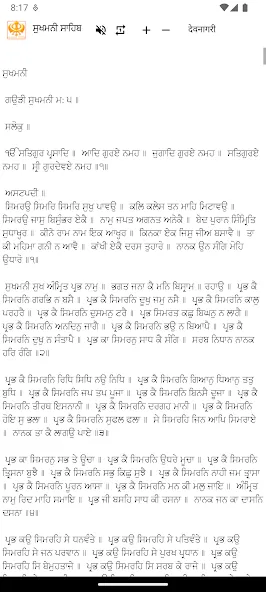 8:17
ਸੁਖਮਨੀ ਸਾਹਿਬ
देवनागरी
ਸੁਖਮਨੀ
ਗਉੜੀ ਸੁਖਮਨੀ ਮਃ ੫ ॥
ਸਲੋਕੁ ॥
ੴ ਸਤਿਗੁਰ ਪ੍ਰਸਾਦਿ ॥ ਆਦਿ ਗੁਰਏ ਨਮਹ ॥ ਜੁਗਾਦਿ ਗੁਰਏ ਨਮਹ ॥ ਸਤਿਗੁਰਏ
ਨਮਹ ॥ ਸ੍ਰੀ ਗੁਰਦੇਵਏ ਨਮਹ ॥੧॥
ਅਸਟਪਦੀ ॥
ਸਿਮਰਉ ਸਿਮਰਿ ਸਿਮਰਿ ਸੁਖੁ ਪਾਵਉ ॥ ਕਲਿ ਕਲੇਸ ਤਨ ਮਾਹਿ ਮਿਟਾਵਉ ॥
ਸਿਮਰਉ ਜਾਸੁ ਬਿਸੁੰਭਰ ਏਕੈ ॥ ਨਾਮੁ ਜਪਤ ਅਗਨਤ ਅਨੇਕੈ ॥ ਬੇਦ ਪੁਰਾਨ ਸਿੰਮ੍ਰਿਤਿ
ਸੁਧਾਖ੍ਯਰ ॥ ਕੀਨੇ ਰਾਮ ਨਾਮ ਇਕ ਆਖ੍ਯਰ ॥ ਕਿਨਕਾ ਏਕ ਜਿਸੁ ਜੀਅ ਬਸਾਵੈ ॥ ਤਾ
ਕੀ ਮਹਿਮਾ ਗਨੀ ਨ ਆਵੈ ॥ ਕਾਂਖੀ ਏਕੈ ਦਰਸ ਤੁਹਾਰੋ ॥ ਨਾਨਕ ਉਨ ਸੰਗਿ ਮੋਹਿ
ਉਧਾਰੋ ॥੧॥
ਸੁਖਮਨੀ ਸੁਖ ਅੰਮ੍ਰਿਤ ਪ੍ਰਭ ਨਾਮੁ ॥ ਭਗਤ ਜਨਾ ਕੈ ਮਨਿ ਬਿਸ੍ਰਾਮ ॥ ਰਹਾਉ ॥ ਪ੍ਰਭ
ਕੈ ਸਿਮਰਨਿ ਗਰਭਿ ਨ ਬਸੈ ॥ ਪ੍ਰਭ ਕੈ ਸਿਮਰਨਿ ਦੂਖੁ ਜਮੁ ਨਸੈ ॥ ਪ੍ਰਭ ਕੈ ਸਿਮਰਨਿ ਕਾਲੁ
ਪਰਹਰੈ ॥ ਪ੍ਰਭ ਕੈ ਸਿਮਰਨਿ ਦੁਸਮਨੁ ਟਰੈ ॥ ਪ੍ਰਭ ਸਿਮਰਤ ਕਛੁ ਬਿਘਨੁ ਨ ਲਾਗੈ ॥
ਪ੍ਰਭ ਕੈ ਸਿਮਰਨਿ ਅਨਦਿਨੁ ਜਾਗੈ ॥ ਪ੍ਰਭ ਕੈ ਸਿਮਰਨਿ ਭਉ ਨ ਬਿਆਪੈ ॥ ਪ੍ਰਭ ਕੈ
ਸਿਮਰਨਿ ਦੁਖੁ ਨ ਸੰਤਾਪੈ ॥ ਪ੍ਰਭ ਕਾ ਸਿਮਰਨੁ ਸਾਧ ਕੈ ਸੰਗਿ ॥ ਸਰਬ ਨਿਧਾਨ ਨਾਨਕ
ਹਰਿ ਰੰਗਿ ॥੨॥
ਪ੍ਰਭ ਕੈ ਸਿਮਰਨਿ ਰਿਧਿ ਸਿਧਿ ਨਉ ਨਿਧਿ ॥ ਪ੍ਰਭ ਕੈ ਸਿਮਰਨਿ ਗਿਆਨੁ ਧਿਆਨੁ ਤਤੁ
ਬੁਧਿ ॥ ਪ੍ਰਭ ਕੈ ਸਿਮਰਨਿ ਜਪ ਤਪ ਪੂਜਾ ॥ ਪ੍ਰਭ ਕੈ ਸਿਮਰਨਿ ਬਿਨਸੈ ਦੂਜਾ ॥ ਪ੍ਰਭ ਕੈ
ਸਿਮਰਨਿ ਤੀਰਥ ਇਸਨਾਨੀ ॥ ਪ੍ਰਭ ਕੈ ਸਿਮਰਨਿ ਦਰਗਹ ਮਾਨੀ ॥ ਪ੍ਰਭ ਕੈ ਸਿਮਰਨਿ
ਹੋਇ ਸੁ ਭਲਾ ॥ ਪ੍ਰਭ ਕੈ ਸਿਮਰਨਿ ਸੁਫਲ ਫਲਾ ॥ ਸੇ ਸਿਮਰਹਿ ਜਿਨ ਆਪਿ ਸਿਮਰਾਏ
॥ ਨਾਨਕ ਤਾ ਕੈ ਲਾਗਉ ਪਾਏ ॥੩॥
ਪ੍ਰਭ ਕਾ ਸਿਮਰਨੁ ਸਭ ਤੇ ਊਚਾ ॥ ਪ੍ਰਭ ਕੈ ਸਿਮਰਨਿ ਉਧਰੇ ਮੂਚਾ ॥ ਪ੍ਰਭ ਕੈ ਸਿਮਰਨਿ
ਤ੍ਰਿਸਨਾ ਬੁਝੈ ॥ ਪ੍ਰਭ ਕੈ ਸਿਮਰਨਿ ਸਭੁ ਕਿਛੁ ਸੁਝੈ ॥ ਪ੍ਰਭ ਕੈ ਸਿਮਰਨਿ ਨਾਹੀ ਜਮ ਤ੍ਰਾਸਾ
॥ ਪ੍ਰਭ ਕੈ ਸਿਮਰਨਿ ਪੂਰਨ ਆਸਾ ॥ ਪ੍ਰਭ ਕੈ ਸਿਮਰਨਿ ਮਨ ਕੀ ਮਲੁ ਜਾਇ ॥ ਅੰਮ੍ਰਿਤ
ਨਾਮੁ ਰਿਦ ਮਾਹਿ ਸਮਾਇ ॥ ਪ੍ਰਭ ਜੀ ਬਸਹਿ ਸਾਧ ਕੀ ਰਸਨਾ ॥ ਨਾਨਕ ਜਨ ਕਾ ਦਾਸਨਿ
ਦਸਨਾ ॥੪॥
ਪ੍ਰਭ ਕਉ ਸਿਮਰਹਿ ਸੇ ਧਨਵੰਤੇ ॥ ਪ੍ਰਭ ਕਉ ਸਿਮਰਹਿ ਸੇ ਪਤਿਵੰਤੇ ॥ ਪ੍ਰਭ ਕਉ
ਸਿਮਰਹਿ ਸੇ ਜਨ ਪਰਵਾਨ ॥ ਪ੍ਰਭ ਕਉ ਸਿਮਰਹਿ ਸੇ ਪੁਰਖ ਪ੍ਰਧਾਨ ॥ ਪ੍ਰਭ ਕਉ
ਸਿਮਰਹਿ ਸਿ ਬੇਮੁਹਤਾਜੇ ॥ ਪ੍ਰਭ ਕਉ ਸਿਮਰਹਿ ਸਿ ਸਰਬ ਕੇ ਰਾਜੇ ॥ ਪ੍ਰਭ ਕਉ